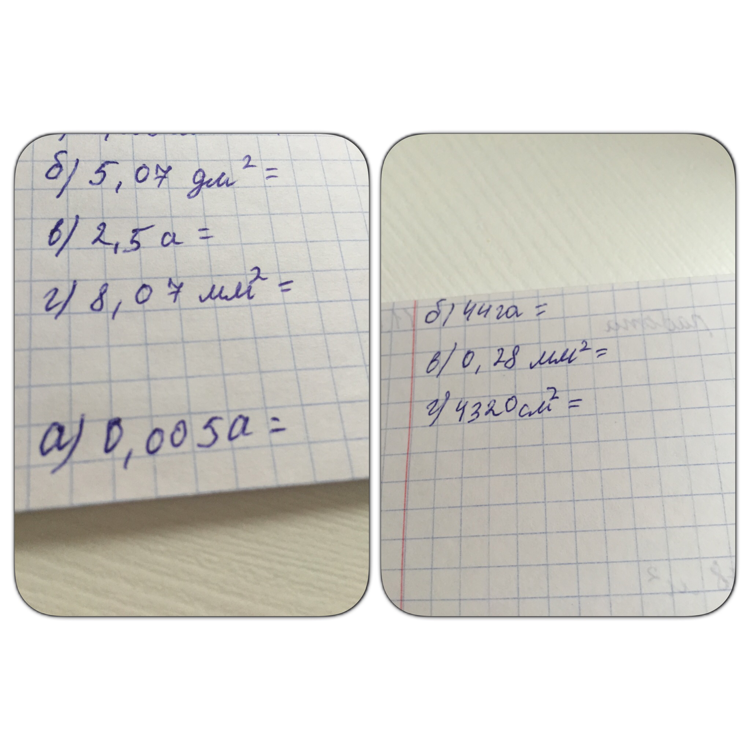 б) 5,07 дм² =
в) 2,5 а =
г) 8,07 мм² =
а) 0,005а =
б) 44га =
в) 0,28 мм² =
г) 4320см² =